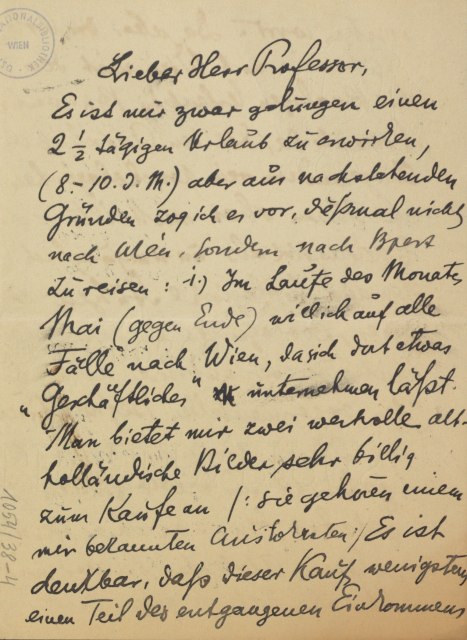 NATIONALBIBLIOTHEK
WIEN
Lieber Herr Professor,
Es ist mir zwar gelungen einen
2 1/2 tägigen Urlaub zu erwirken,
(8-10. d. M.) aber aus nachstehenden
Gründen zog ich es vor, dießmal nicht
nach Wien, sondern nach Bpest
zu reisen: 1.) Im Laufe des Monats
Mai (gegen Ende) will ich auf alle
Fälle nach Wien, da sich dort etwas
„Geschäftliches" unternehmen läßt.
Man bietet mir zwei wertvolle alt-
holländische Bilder sehr billig
zum Kaufe an /: sie gehören einem
mir bekannten Aristokraten :/ Es ist
denkbar, daß dieser Kauf wenigstens
einen Teil des entgangenen Einkommens
1054/38-4